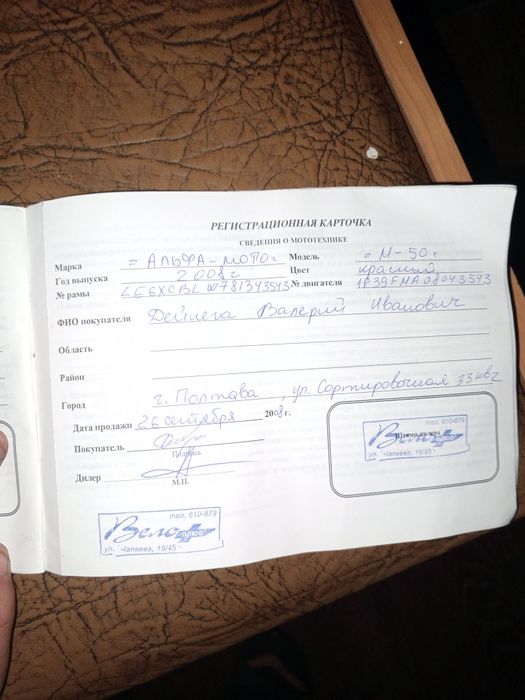 РЕГИСТРАЦИОННАЯ КАРТОЧКА
СВЕДЕНИЯ О МОТОТЕХНИКЕ
Марка = АЛЬФА-МОТО = Модель = М-50 =
Год выпуска 2008г Цвет красный
№ рамы LE6XCBLW781343543 № двигателя 1P39FMA08043543
ФИО покупателя Дейнега Валерий Иванович
Область
Район
Город г. Полтава, ул. Сортировочная 33 кв2
Дата продажи 26 сентября 2008 г.
Покупатель
Подпись
Дилер
М.П.
тел. 610-879
Вело
ул. Чапаева, 19/45
тел. 610-879
Вело плюс
ул. Чапаева, 19/45